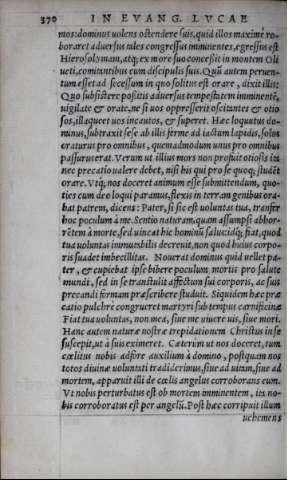 370 IN EVANG. LVCAE
mos: dominus uolens ostendere suis, quid illos maximè ro-
boraret aduersus tales congressus imminentes, egressus est
Hierosolymam, atq; ex more suo concessit in montem Oli
ueti, comitantibus eum discipulis suis. Quū autem peruen-
tum esset ad secessum in quo solitus est orare, dixit illis:
Quo subsistere possitis aduersus tempestatem imminentē,
uigilate & orate, ne si uos oppresserit oscitantes & otio
sos, illaqueet uos incautos, & superet. Hæc loquutus do-
minus, subtraxit sese ab illis fermè ad iactum lapidis, solus
oraturus pro omnibus, quemadmodum unus pro omnibus
passurus erat. Verum ut illius mors non profuit otiosis ita
nec precatio ualere debet, nisi his qui pro se quoq; studēt
orare. Vtiq; nos doceret animum esse submittendum, quo-
ties cum deo loqui paramus, flexis in terram genibus ora-
bat patrem, dicens: Pater, si sic est uoluntas tua, transfer
hoc poculum à me. Sentio naturam, quam assumpsi abhor-
rētem à morte, sed uincat hic hominū salus cidq; fiat, quod
tua uoluntas immutabilis decreuit, non quod huius corpo-
ris suadet imbecillitas. Nouerat dominus quid uellet pa-
ter, & cupiebat ipse bibere poculum mortis pro salute
mundi, sed in se transtulit affectum sui corporis, ac suis
precandi formam præscribere studuit. Siquidem hæc præ
catio pulchrè congrueret martyri sub tempus carnificinæ
Fiat tua uoluntas, non mea, siue me uiuere uis, siue mori.
Hanc autem naturæ nostræ trepidationem Christus in se
suscepit, ut à suis eximeret. Cæterùm ut nos doceret, tum
cœlitus nobis adfore auxilium à domino, postquam nos
totos diuinæ uoluntati tradiderimus, siue ad uitam, siue ad
mortem, apparuit illi de cœlis angelus corroborans eum.
Vt nobis perturbatus est ob mortem imminentem, ita no-
bis corroboratus est per angelū. Post hæc corripuit illum
uehemens